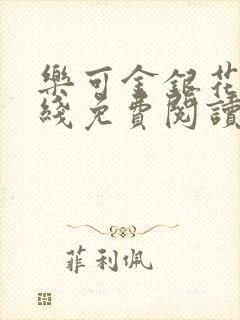 樂可金銀花
綫免費閱讀
菲利佩